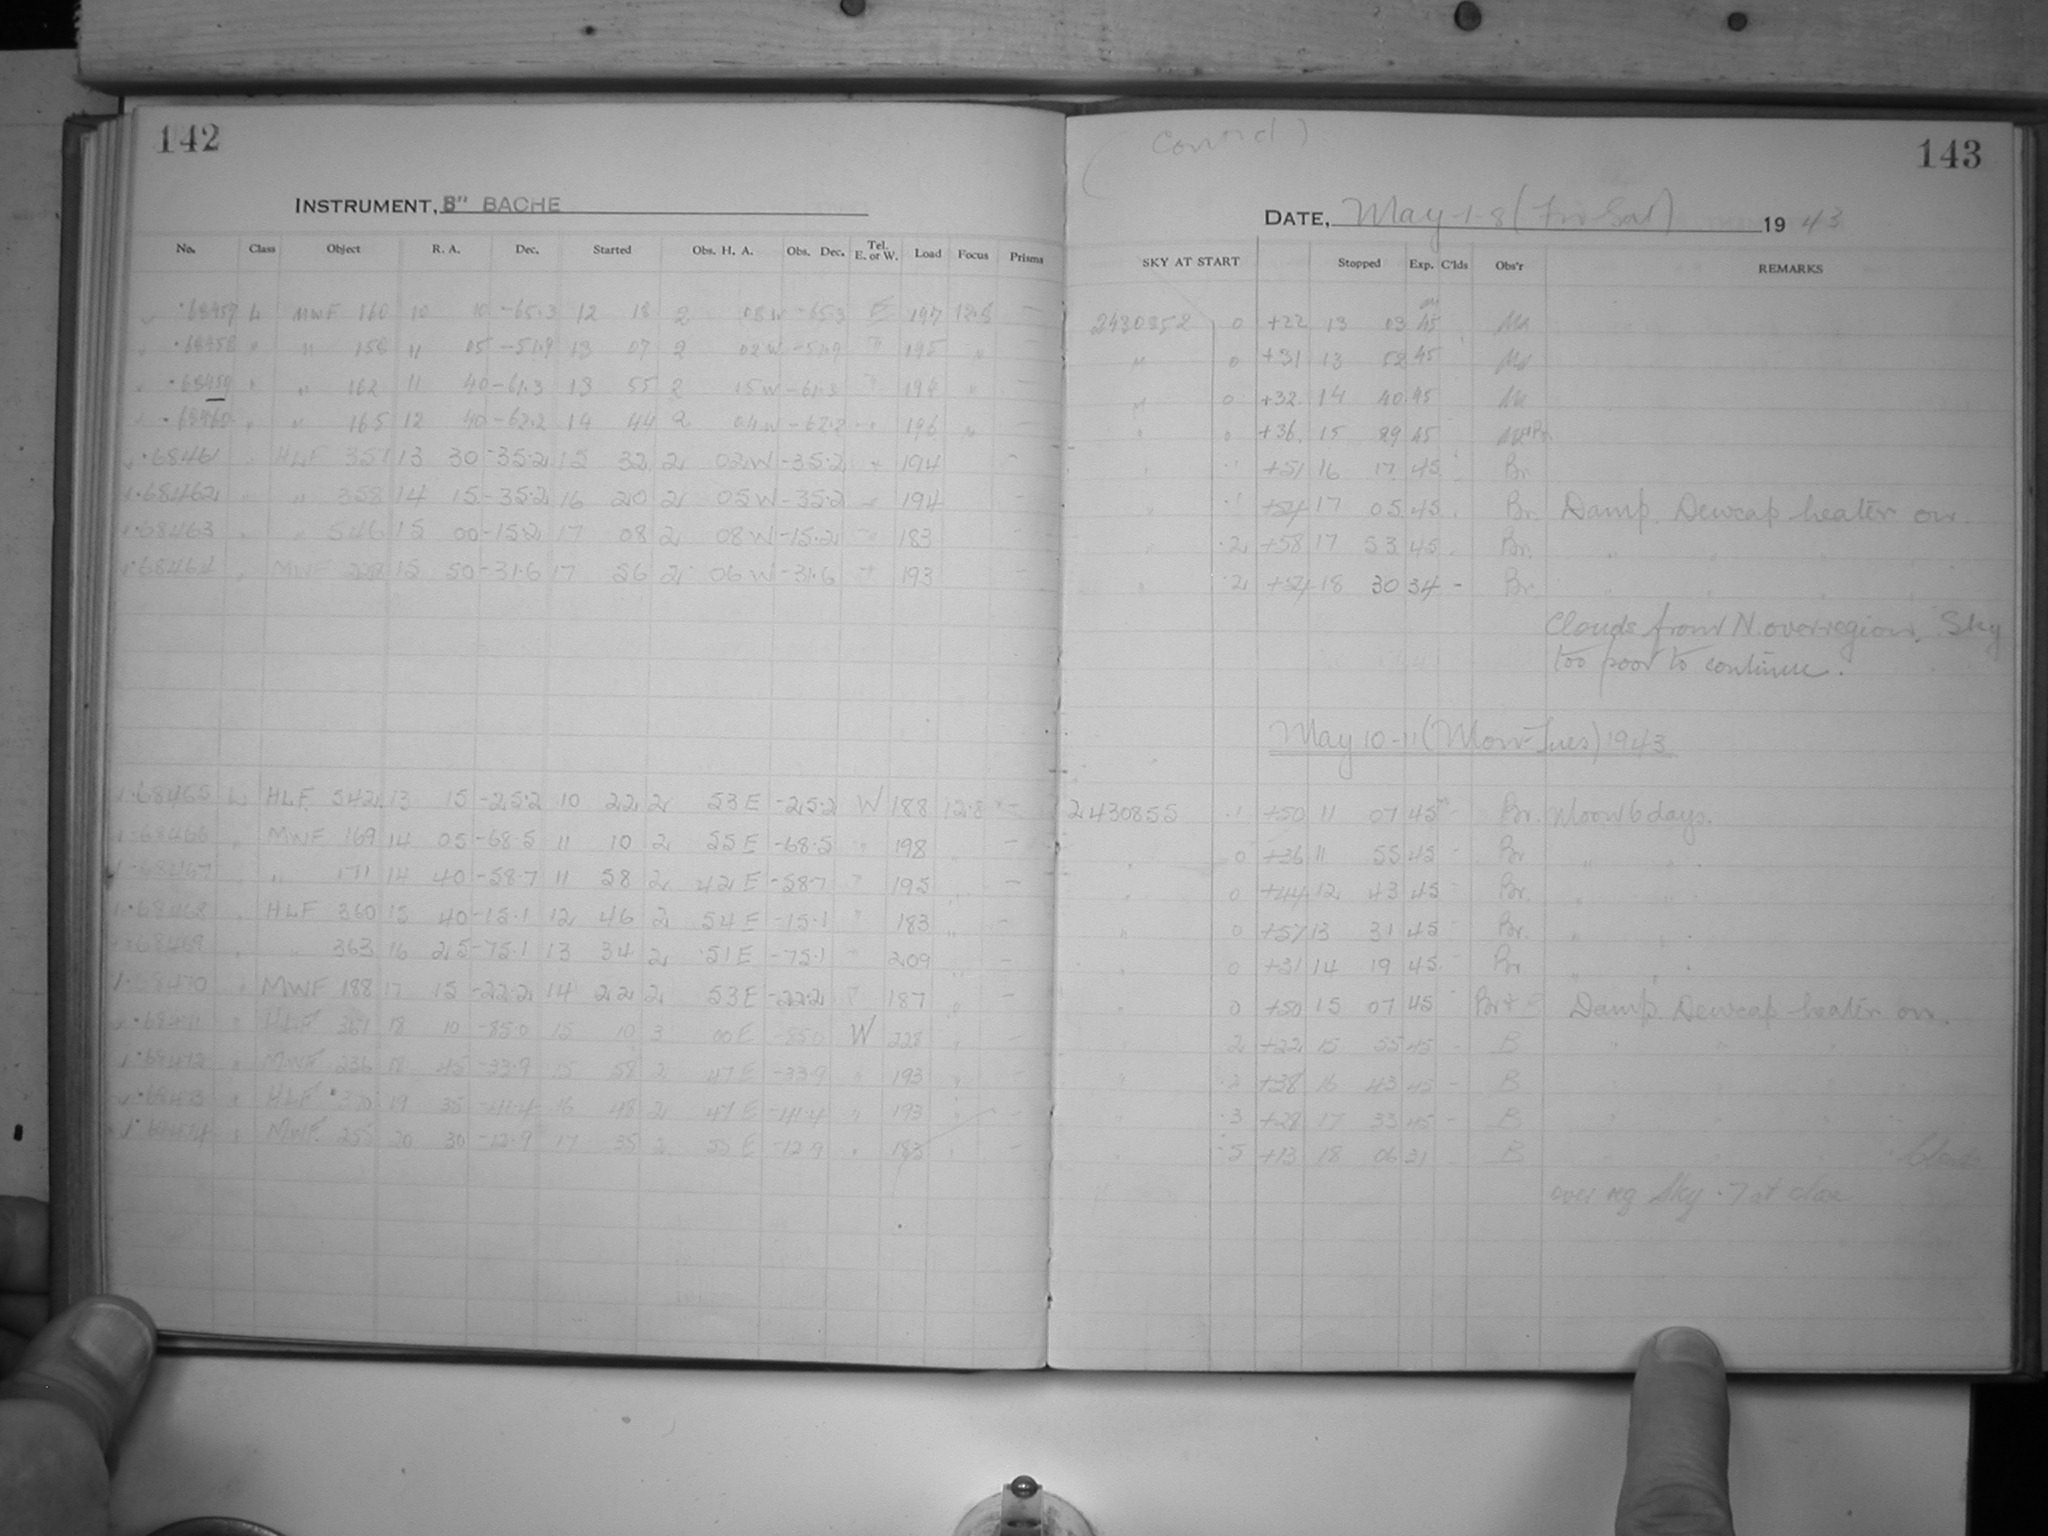 142
INSTRUMENT, 8" BACHE
No. Class Object R. A. Dec. Started Obs. H. A. Obs. Dec. Tel. E. or W. Load Focus Prisms
MWF 160 10 10 -65.3 12 18 2 08 W -65.3 E 197 12.8 -
" " 05 -51.9 13 07 2 02 W -51.9 " 195 " -
68459 " " 162 11 40 -61.3 13 55 2 15 W -61.3 " 194 " -
68460 " " 165 12 40 -62.2 14 44 2 04 W -62.2 " 196 " -
68461 " HLF 351 13 30 -35.2 15 32 2 02 W -35.2 " 194 -
68462 " " 358 14 15 -35.2 16 20 2 05 W -35.2 " 194 -
68463 " " 546 15 00 -15.2 17 08 2 08 W -15.2 " 183 -
68464 " MWF 15 50 -31.6 17 56 2 06 W -31.6 " 193 -
68465 L HLF 542 13 15 -25.2 10 22 2 53 E -25.2 W 188 12.8 -
68466 " MWF 169 14 05 -68.5 11 10 2 55 E -68.5 " 198 " -
68467 " " 171 14 40 -58.7 11 58 2 42 E -58.7 " 195 " -
68468 " HLF 360 15 40 -15.1 12 46 2 54 E -15.1 " 183 " -
68469 " " 363 16 25 -75.1 13 34 2 51 E -75.1 " 209 " -
68470 " MWF 188 17 15 -22.2 14 22 2 53 E -22.2 " 187 " -
68471 " HLF 367 18 10 -85.0 15 10 3 00 E -85.0 W 228 " -
" MWF 236 18 45 -33.9 15 58 2 47 E -33.9 " 193 " -
" HLF 370 19 35 -41.4 16 48 2 47 E -41.4 " 193 " -
" MWF 255 20 30 -12.9 17 35 2 55 E -12.9 " 183 " -
(Cont'd)
143
DATE, May (Fri-Sat) 1943
SKY AT START Stopped Exp. C'lds Obs'r REMARKS
2430852 0 +22 13 03 45
" 0 +31 13 52 45
" 0 +32 14 40 45
" 0 +36 15 29 45
" .1 +51 16 17 45 Br.
" .1 +54 17 05 45 Br. Damp. Dewcap heater on.
" .2 +58 17 53 45 Br. " " "
" .2 +54 18 30 34 - Br. " " "
Clouds from N over region. Sky
too poor to continue.
May 10-11 (Mon-Tues) 1943
2430855 .1 +50 11 07 45 - Br. Moon 6 days.
" 0 +36 11 55 45 - Br. " "
" 0 +44 12 43 45 - Br. " "
" 0 +57 13 31 45 - Br. " "
" 0 +31 14 19 45 - Br. " "
" 0 +50 15 07 45 - Br + B Damp. Dewcap heater on.
" .2 +22 15 55 45 - B " " "
" .2 +38 16 43 45 - B
" .3 +28 17 33 45 - B
" .5 +13 18 06 31 B Clouds
over reg Sky .7 at close